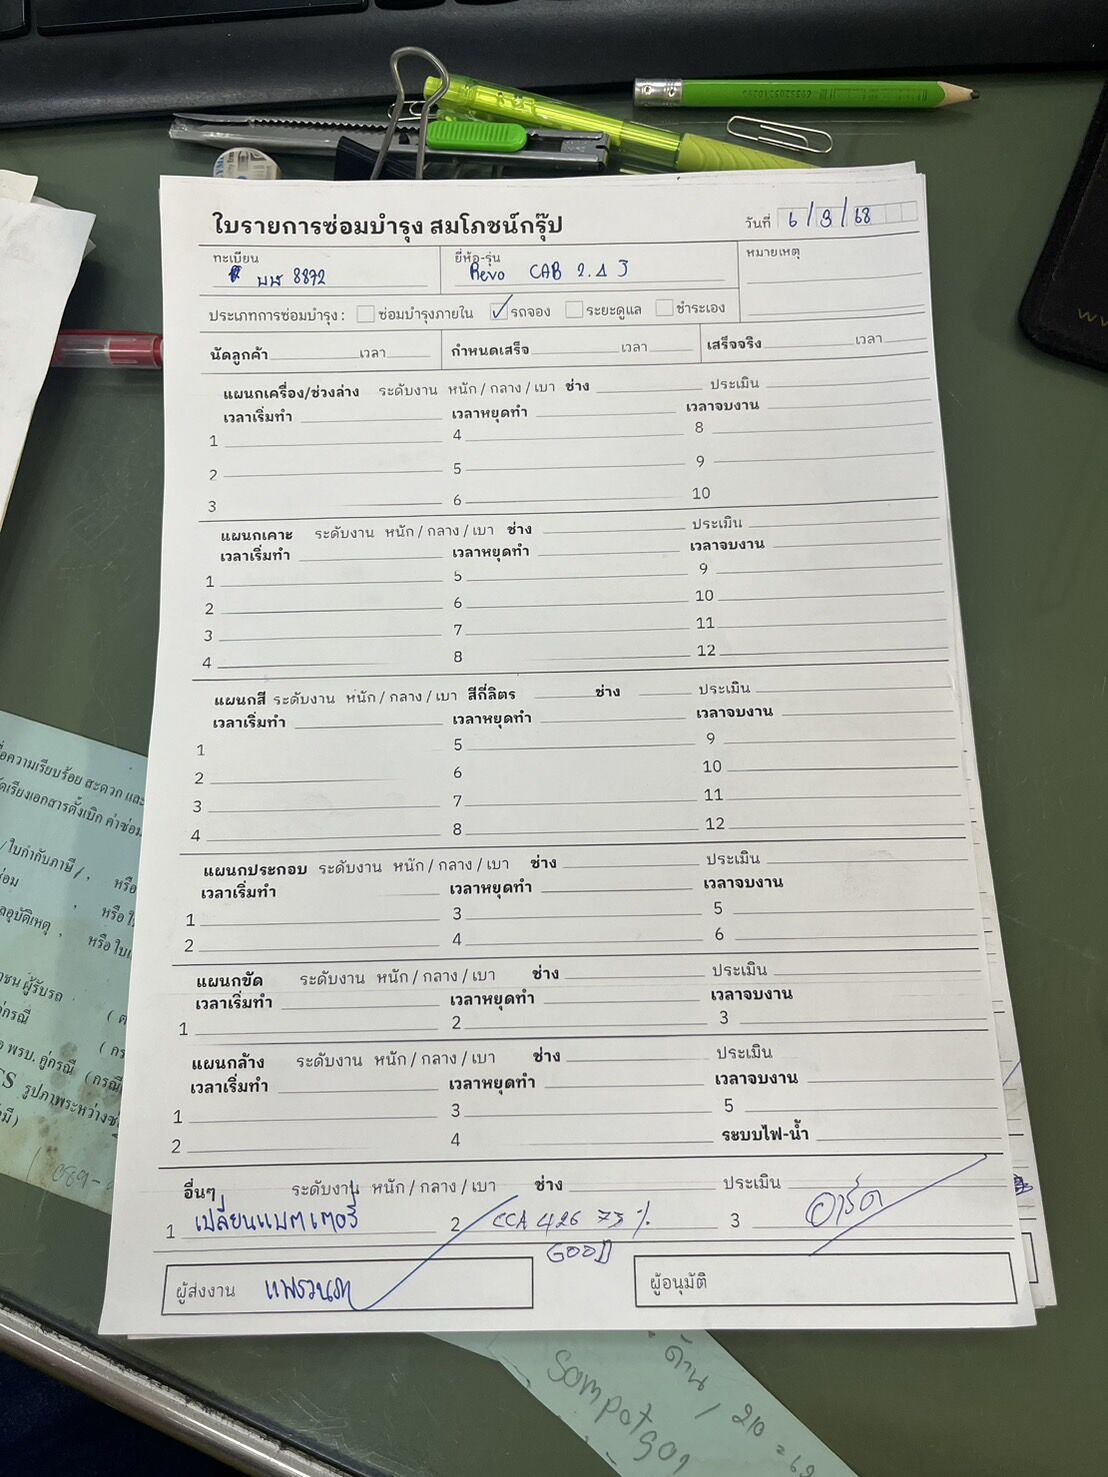 ใบรายการซ่อมบำรุง สมโภชน์กรุ๊ป
วันที่ 6/3/68
ทะเบียน
บษ 8872
ยี่ห้อ-รุ่น
Revo CAB 2.4 J
หมายเหตุ
ประเภทการซ่อมบำรุง : ซ่อมบำรุงภายใน รถจอง ระยะดูแล ชำระเอง
นัดลูกค้า เวลา กำหนดเสร็จ เวลา เสร็จจริง เวลา
แผนกเครื่อง/ช่วงล่าง ระดับงาน หนัก / กลาง / เบา ช่าง ประเมิน
เวลาเริ่มทำ เวลาหยุดทำ เวลาจบงาน
1 4 8
2 5 9
3 6 10
แผนกเคาะ ระดับงาน หนัก / กลาง / เบา ช่าง ประเมิน
เวลาเริ่มทำ เวลาหยุดทำ เวลาจบงาน
1 5 9
2 6 10
3 7 11
4 8 12
แผนกสี ระดับงาน หนัก / กลาง / เบา สีกี่ลิตร ช่าง ประเมิน
เวลาเริ่มทำ เวลาหยุดทำ เวลาจบงาน
1 5 9
2 6 10
3 7 11
4 8 12
แผนกประกอบ ระดับงาน หนัก / กลาง / เบา ช่าง ประเมิน
เวลาเริ่มทำ เวลาหยุดทำ เวลาจบงาน
1 3 5
2 4 6
แผนกขัด ระดับงาน หนัก / กลาง / เบา ช่าง ประเมิน
เวลาเริ่มทำ เวลาหยุดทำ เวลาจบงาน
1 2 3
แผนกล้าง ระดับงาน หนัก / กลาง / เบา ช่าง ประเมิน
เวลาเริ่มทำ เวลาหยุดทำ เวลาจบงาน
1 3 5
2 4 ระบบไฟ-น้ำ
อื่นๆ ระดับงาน หนัก / กลาง / เบา ช่าง ประเมิน
1 เปลี่ยนแบตเตอรี่ 2 CCA 426 73 % 3 อาร์ต
GOOD
ผู้ส่งงาน
ผู้อนุมัติ
ื่อความเรียบร้อย สะดวก และ
ัดเรียงเอกสารตั้งเบิก ค่าซ่อม
/ ใบกำกับภาษี / , หรือ
ซ่อม , หรือ
ลอุบัติเหตุ , หรือ
ผู้รับรถ
คู่กรณี
พรบ. คู่กรณี (กรณี
รูปภาพระหว่างซ่
มี)
089-
ด้าน / 210 =
Sompotgo